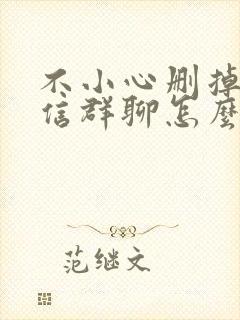 不小心删掉
信群聊怎麼
范继文